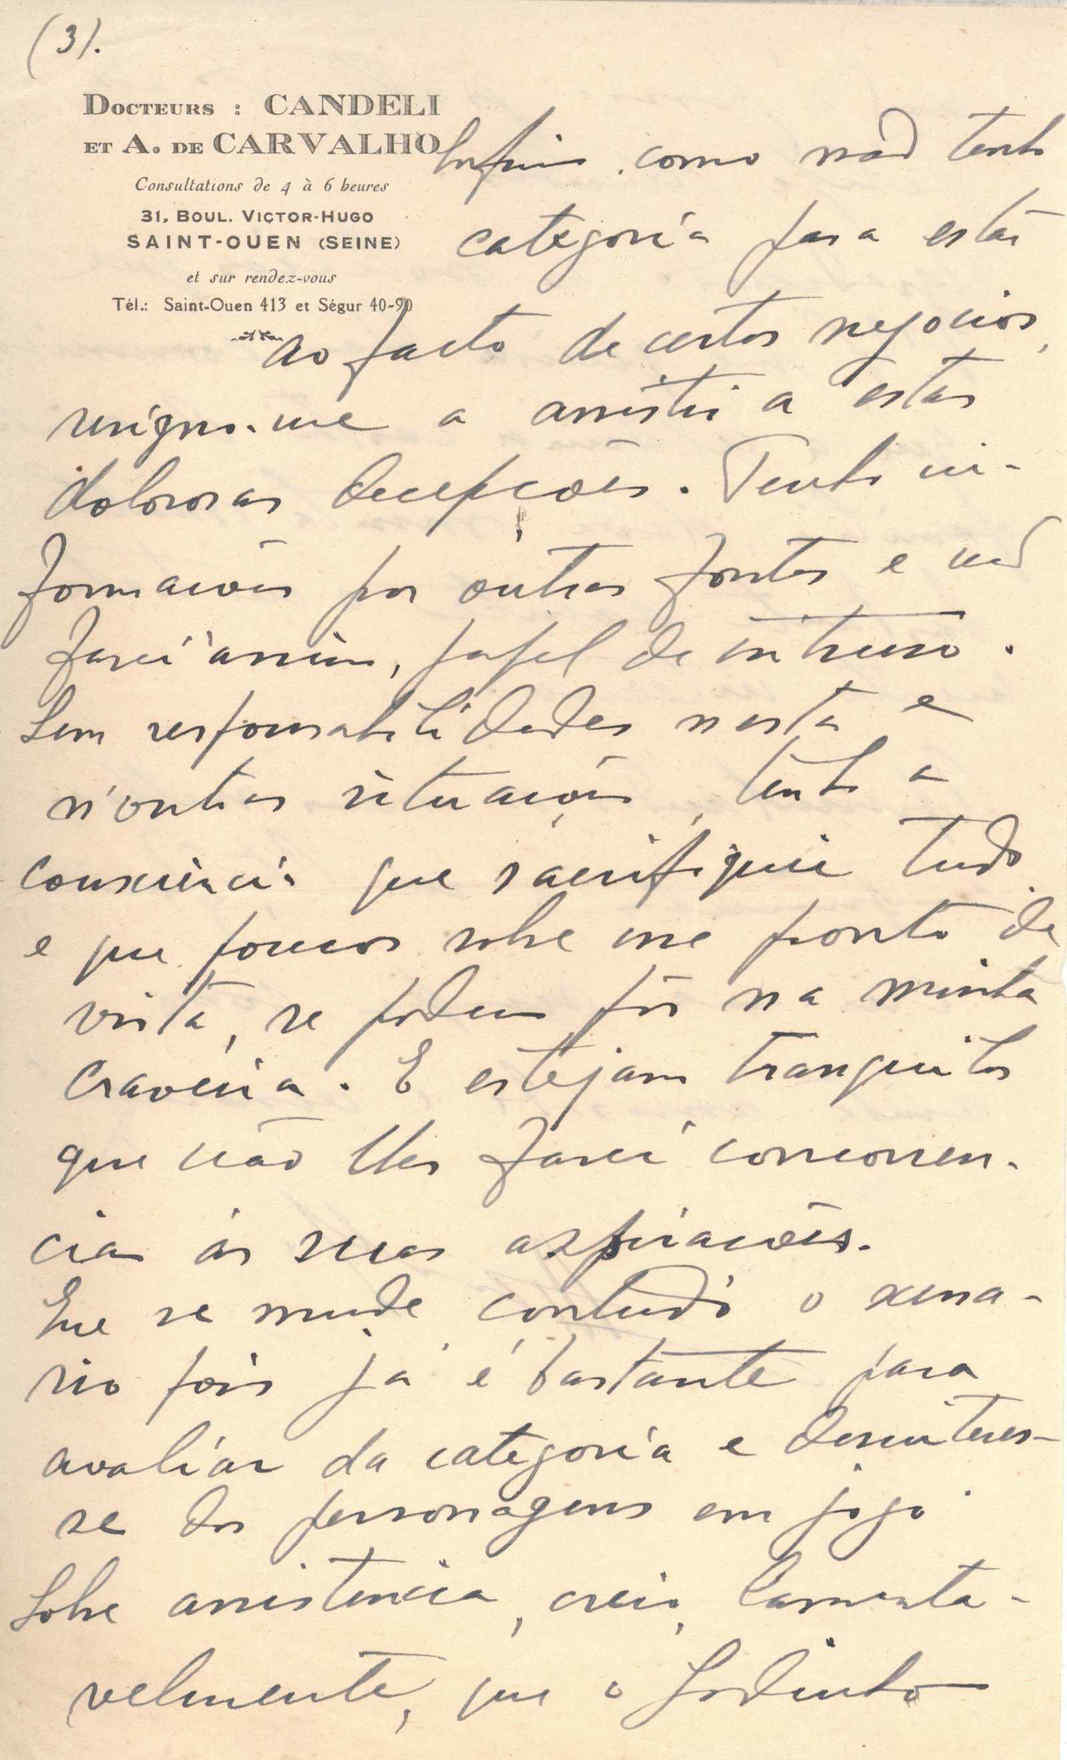 (3).
DOCTEURS : CANDELI
ET A. DE CARVALHO
Consultations de 4 à 6 heures
31, BOUL. VICTOR-HUGO
SAINT-OUEN (SEINE)
et sur rendez-vous
Tél.: Saint-Ouen 413 et Ségur 40-90
Enfim, como não tenho
categoria para estar
ao facto de certos negocios,
resigno-me a assistir a estas
dolorosas decepções. Tenho in-
formações por outras fontes e não
farei assim, papel de intruso.
Sem responsabilidades nesta e
n'outras situações, tenho a
consciencia que sacrifiquei tudo
e que poucos sobre esse ponto de
vista, se podem pôr na minha
craveira. E estejam tranquilos
que não lhes farei concorren-
cia ás suas aspirações.
Que se mude contudo o scena-
rio pois já é bastante para
avaliar da categoria e desinteres-
se dos personagens em jogo.
Sobre assistencia, creio, lamenta-
velmente, que o Godinho